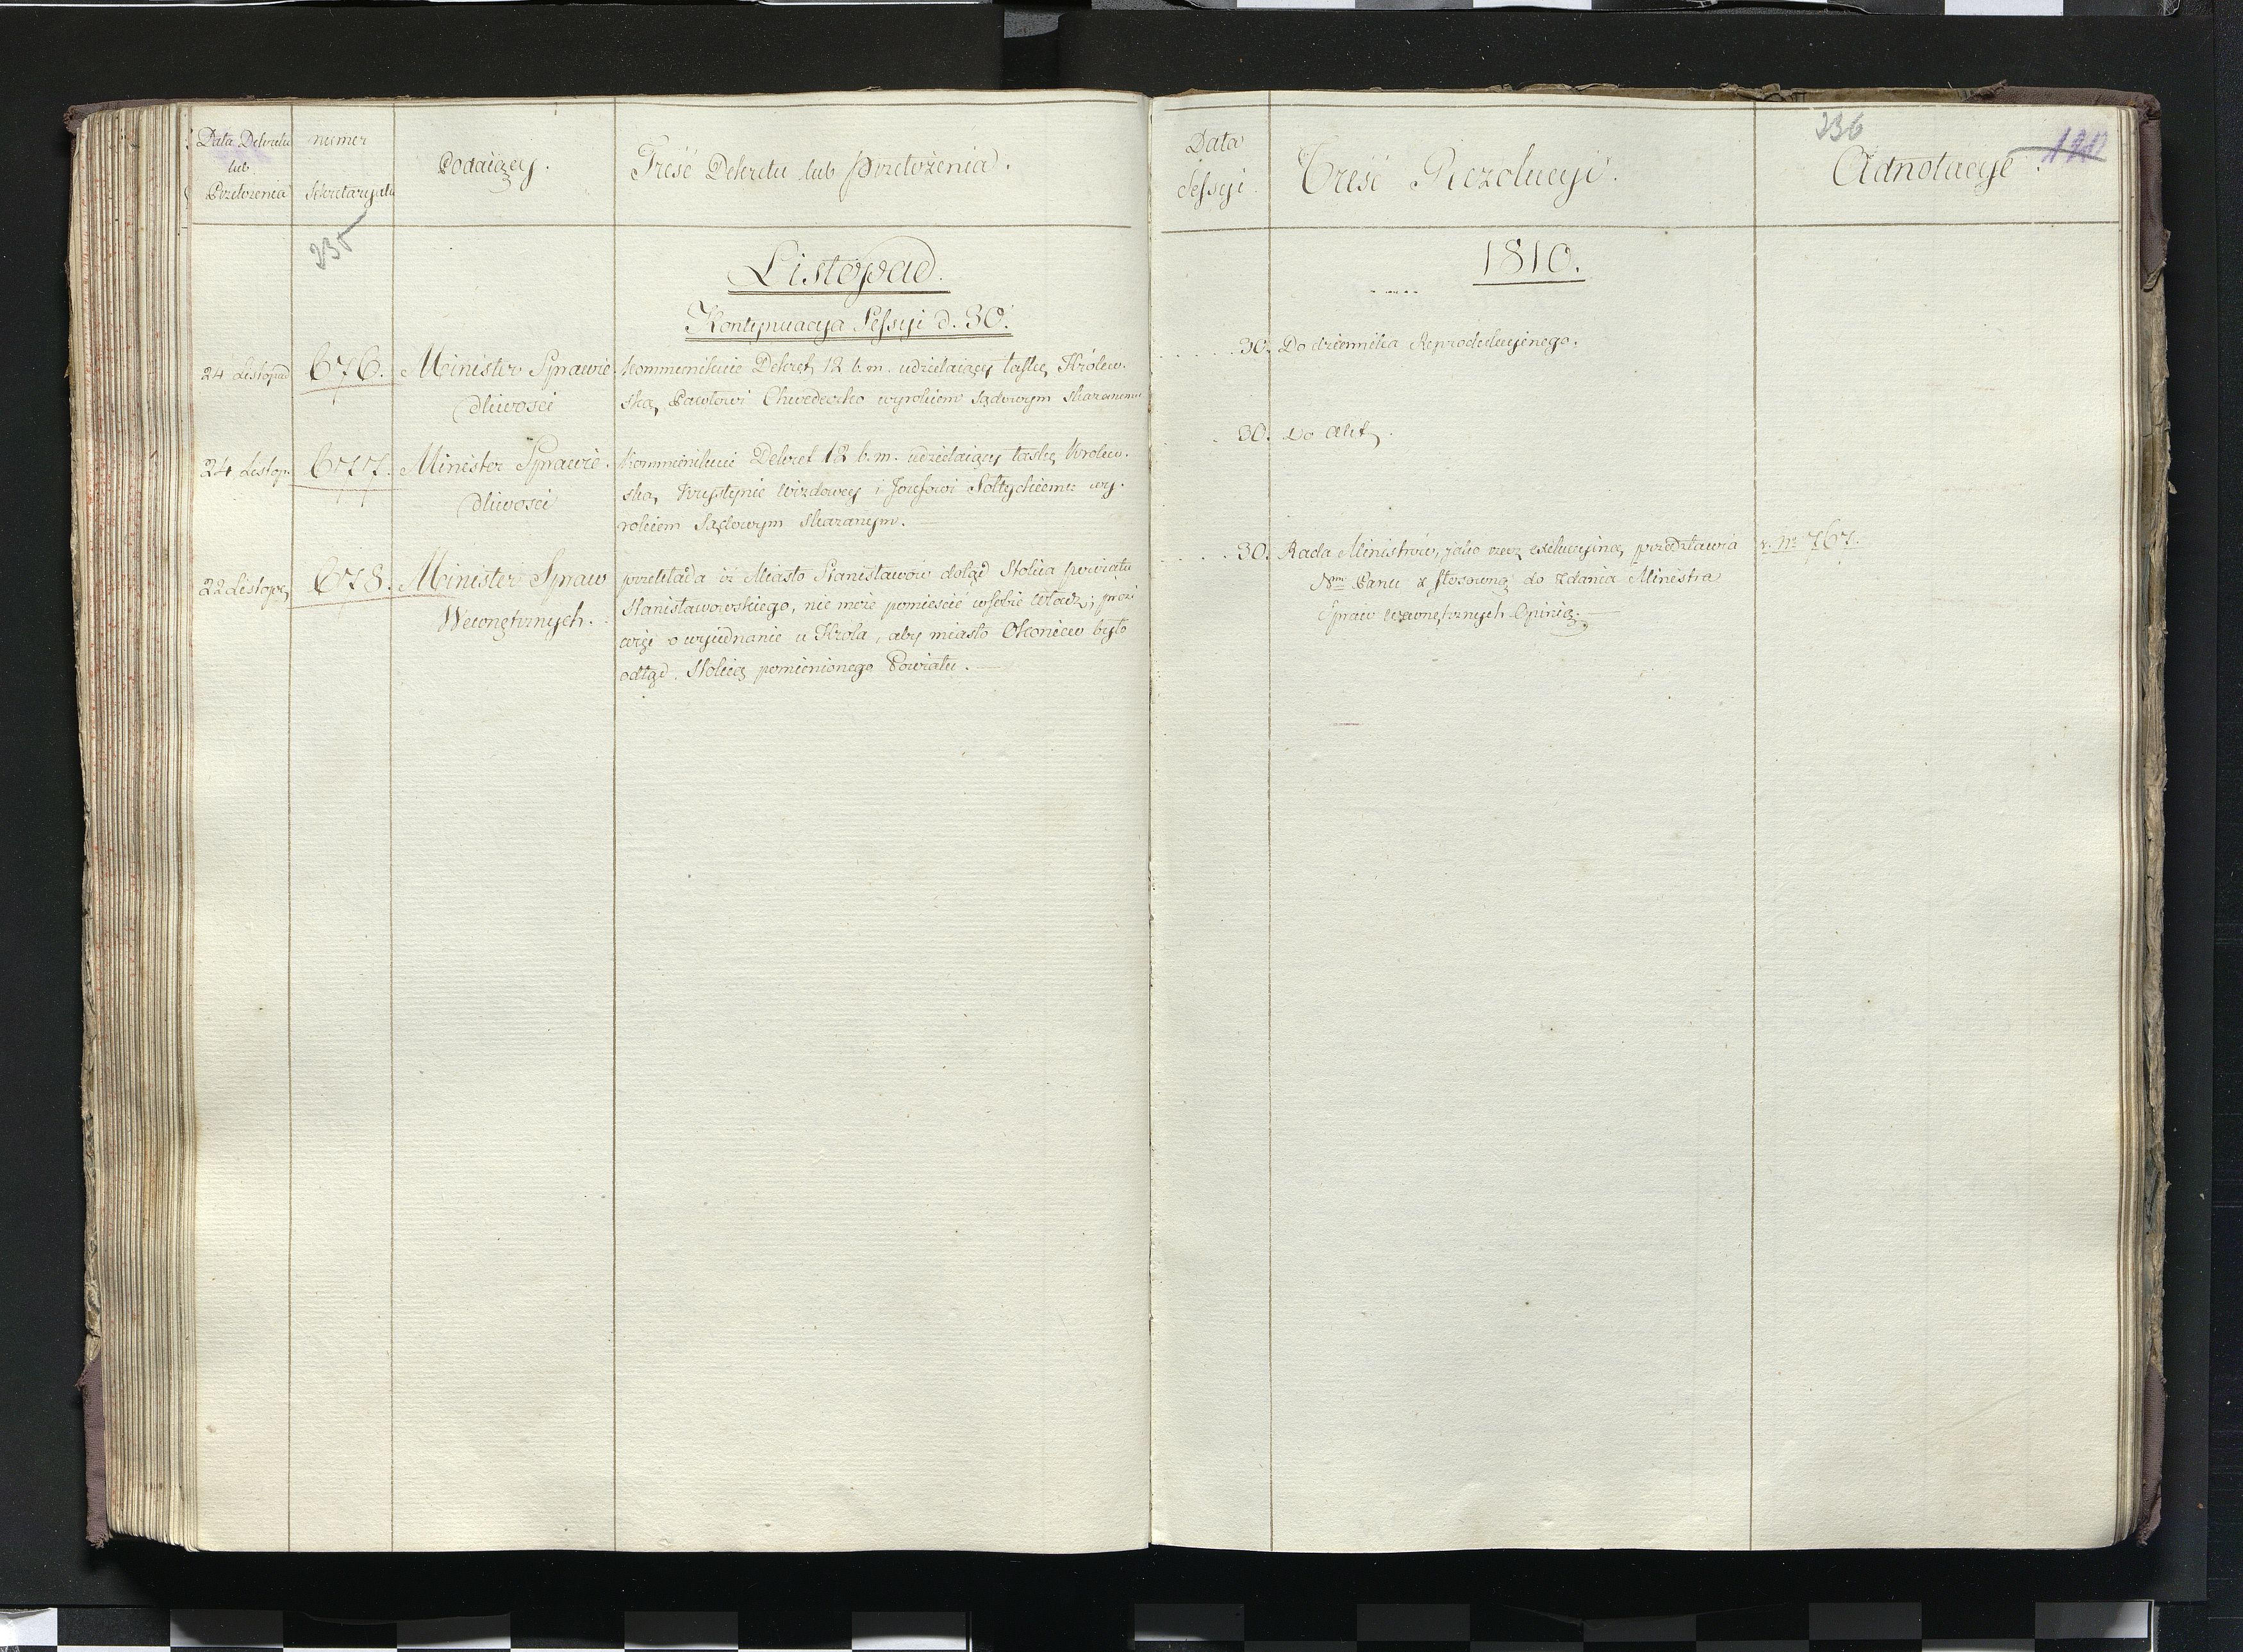 Data Dekretu
lub
Przełożenia
numer
Sekretaryatu
Podaiący.
Treść Dekretu lub przełożenia.
Data
Sessyi.
Treść Rezolucyi.
Adnotacye.
236
235
Listopad.
1810.
Kontynuacya Sessyi d. 30.
24 Listopad
676.
Minister Sprawie-
dliwości
Kommunikuie Dekret 12 b. m. udzielaiący łaskę Królew-
ską Pawłowi Chwedeczko wyrokiem Sądowym skazanemu
30. Do dziennika Reprodukcyinego.
24 Listop.
677.
Minister Sprawie-
dliwości
Kommunikuie Dekret 12 b. m. udzielaiący łaskę Krolew-
ską Krystynie i Jozefowi wy-
rokiem Sądowym skazanym.
30. Do Akt.
22 Listop.
678.
Minister Spraw
Wewnętrznych.
przekłada iż Miasto Stanisławów dotąd Stolica powiatu
Stanisławowskiego, nie może pomieścić w sobie Władz; prosi
więc o wyiednanie u Krola, aby miasto Okoniew było
odtąd Stolicą pomienionego Powiatu.
30. Rada Ministrów, jako rzecz exekucyiną przedstawia
Nmu Panu z stosowną do zdania Ministra
Spraw wewnętrznych Opinią.
v. Nr 767.